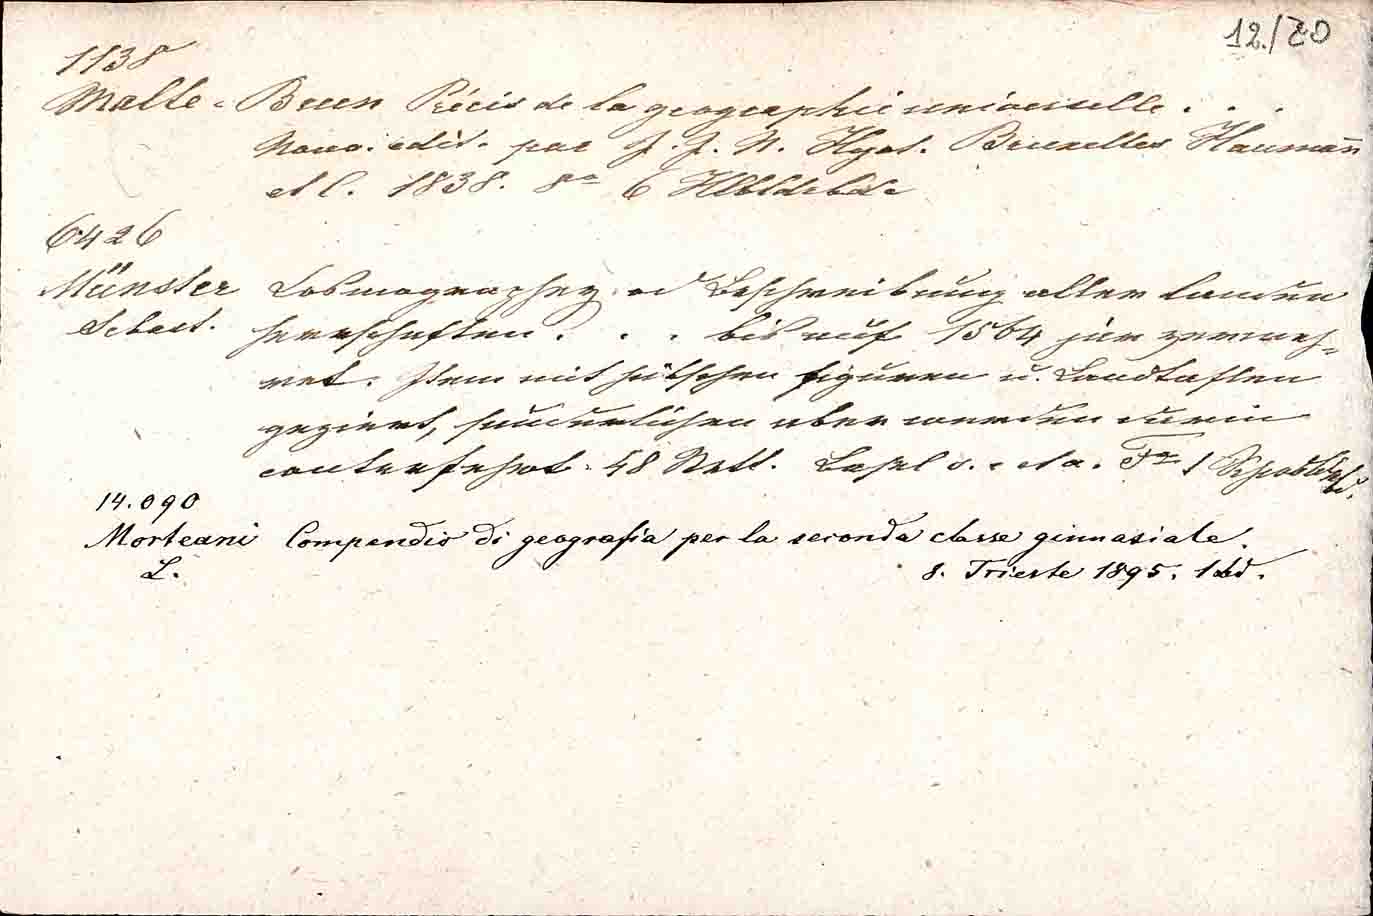 12./20
1138
Malte-Brun Précis de la geographie universelle . . .
Nouv. edit. par J. J. N. Hyot. Bruxelles Haumann
et C. 1838. 8º 6 Hlbldrbde
6426
Münster Cosmographey od Beschreibung aller länder
Sebast. herrschaften . . . bis auf 1564 jar gemeh-
ret. Item mit hübschen figuren u. Landtaflen
geziert, sunderlichen aber werden darin
conterfehet 48 Stett. Basel s. a. Fº 1
14.090
Morteani Compendio di geografia per la seconda classe ginnasiale.
L. 8. Trieste 1895. 1 bd.